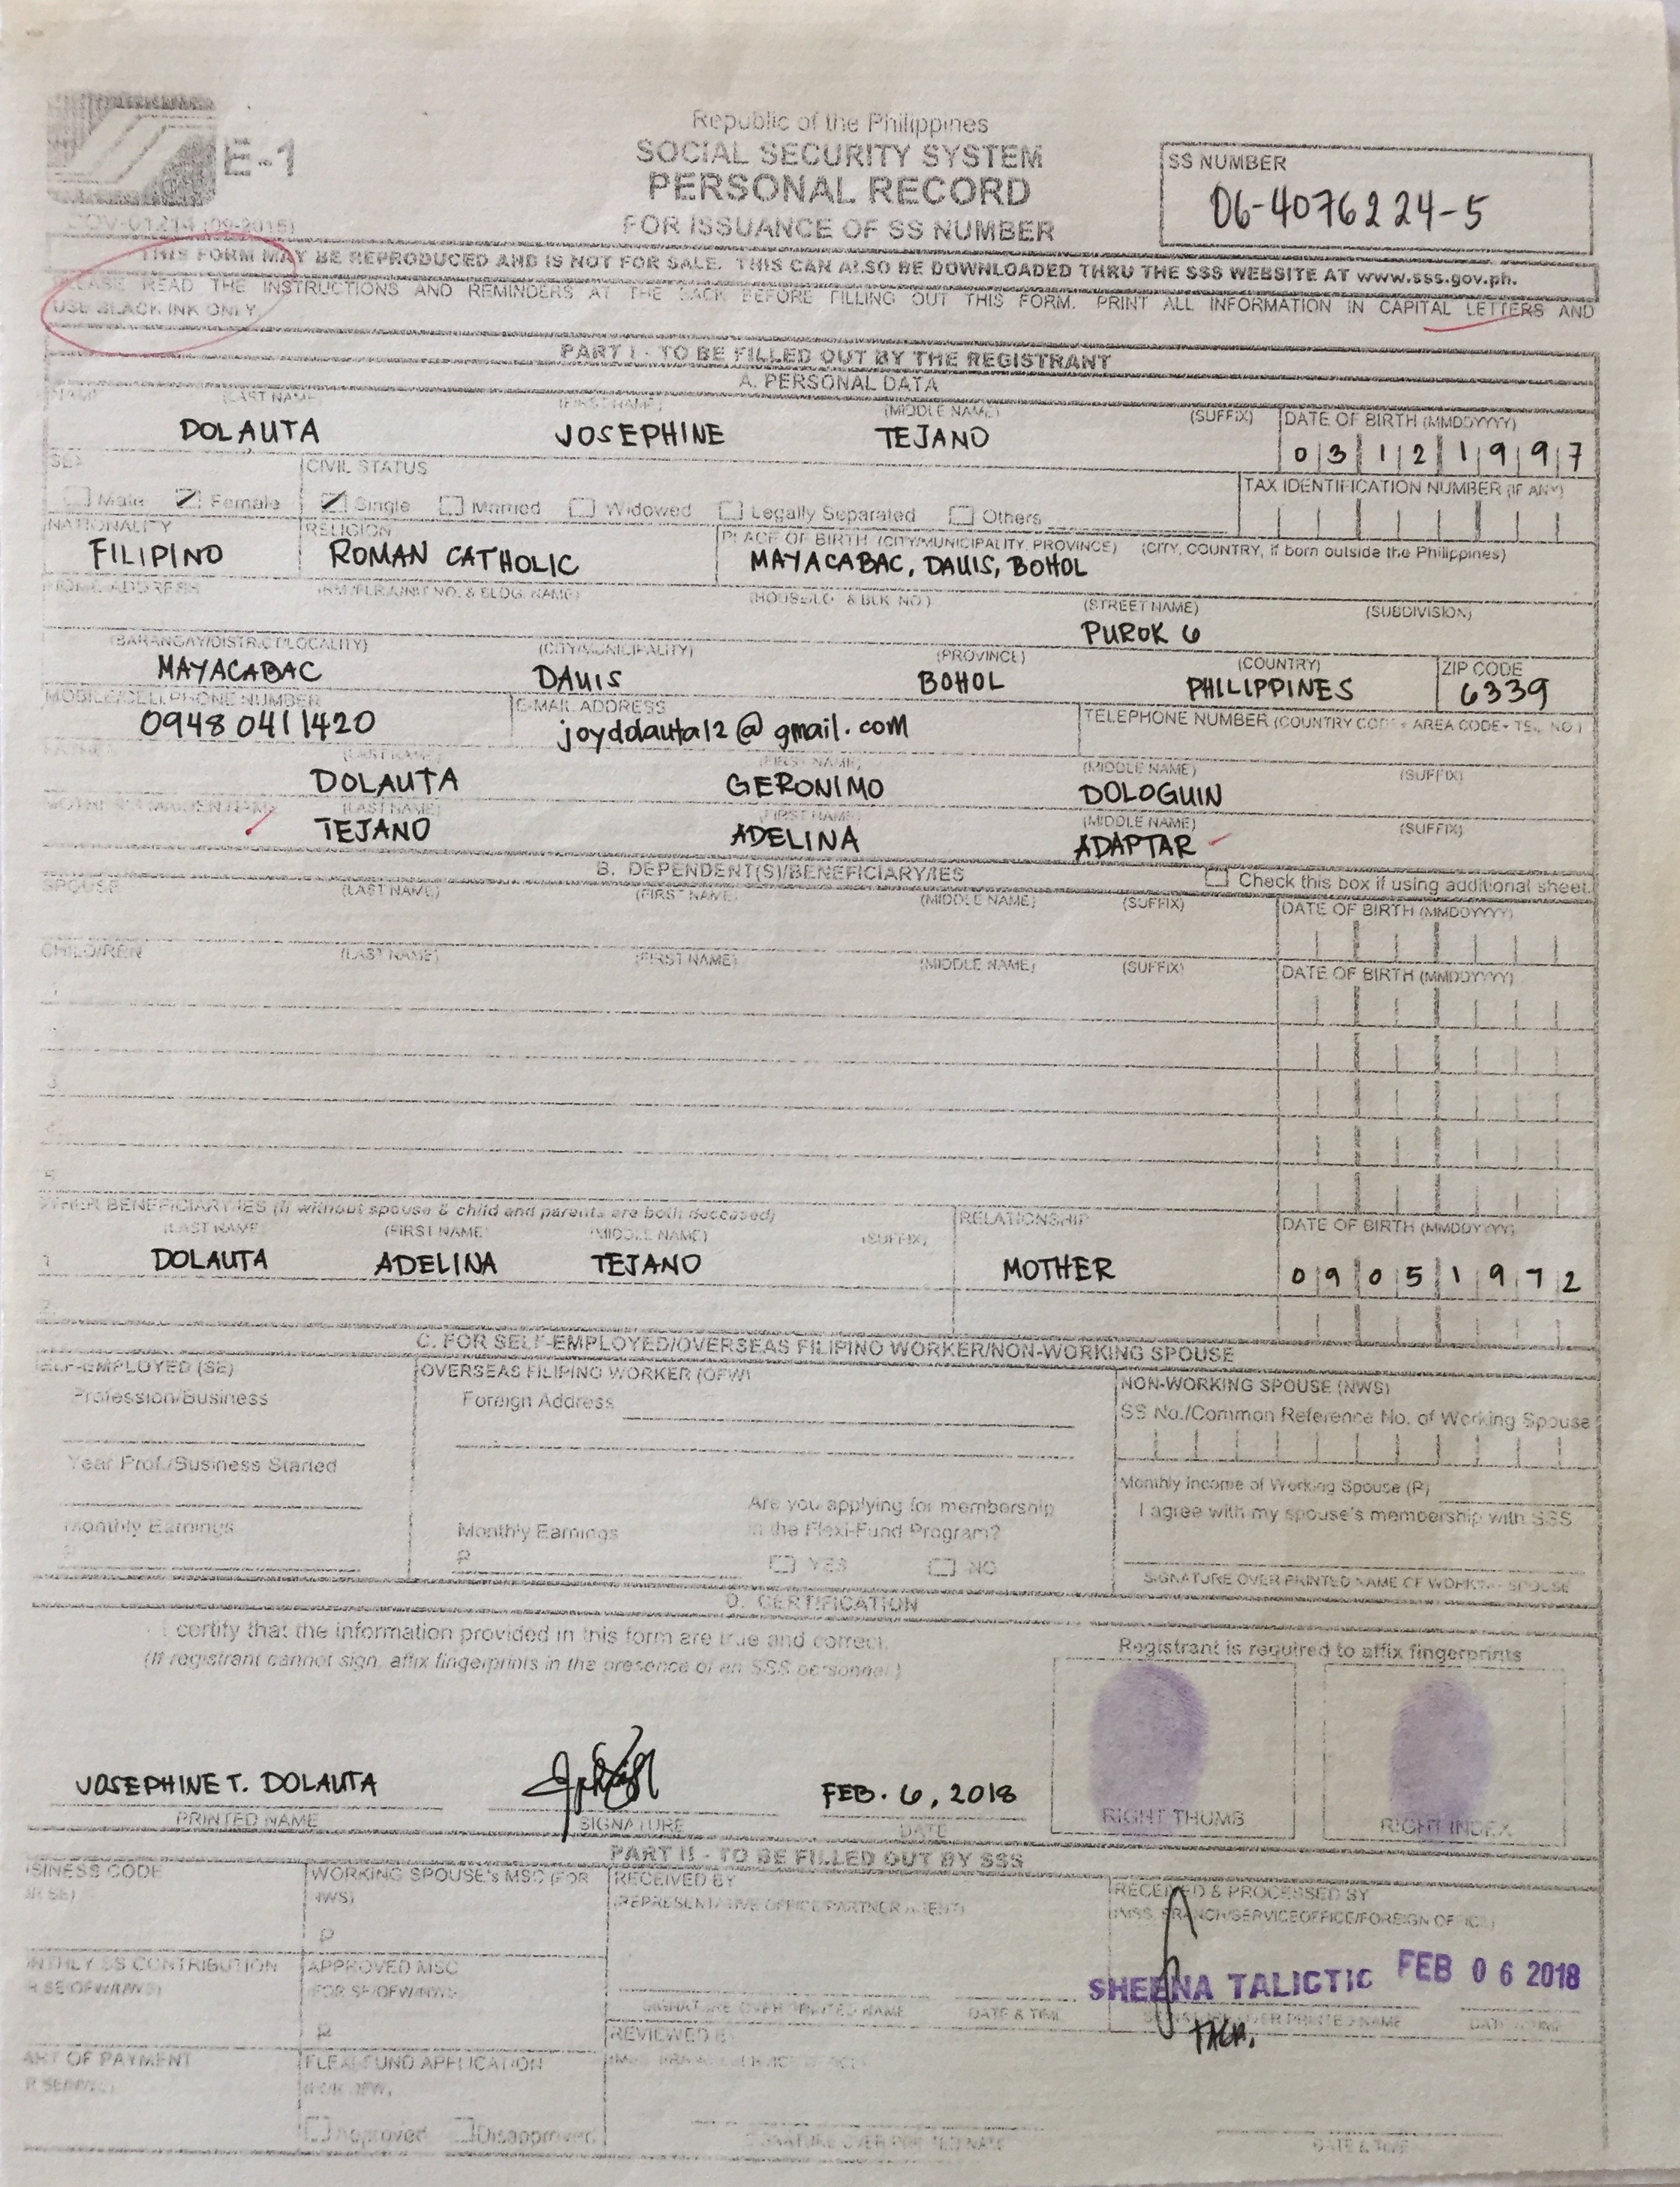 E-1
Republic of the Philippines
SOCIAL SECURITY SYSTEM
PERSONAL RECORD
FOR ISSUANCE OF SS NUMBER
SS NUMBER
06-4076224-5
THIS FORM MAY BE REPRODUCED AND IS NOT FOR SALE. THIS CAN ALSO BE DOWNLOADED THRU THE SSS WEBSITE AT www.sss.gov.ph.
PLEASE READ THE INSTRUCTIONS AND REMINDERS AT THE BACK BEFORE FILLING OUT THIS FORM. PRINT ALL INFORMATION IN CAPITAL LETTERS AND
USE BLACK INK ONLY.
PART I - TO BE FILLED OUT BY THE REGISTRANT
A. PERSONAL DATA
NAME (LAST NAME) (FIRST NAME) (MIDDLE NAME) (SUFFIX) DATE OF BIRTH (MMDDYYYY)
DOLAUTA JOSEPHINE TEJANO 0 3 1 2 1 9 9 7
SEX CIVIL STATUS TAX IDENTIFICATION NUMBER (IF ANY)
Male Female Single Married Widowed Legally Separated Others
NATIONALITY RELIGION PLACE OF BIRTH (CITY/MUNICIPALITY, PROVINCE) (CITY, COUNTRY, if born outside the Philippines)
FILIPINO ROMAN CATHOLIC MAYACABAC, DAUIS, BOHOL
HOME ADDRESS (RM/FLR/UNIT NO. & BLDG. NAME) (HOUSE/LOT & BLK. NO.) (STREET NAME) (SUBDIVISION)
PUROK 6
(BARANGAY/DISTRICT/LOCALITY) (CITY/MUNICIPALITY) (PROVINCE) (COUNTRY) ZIP CODE
MAYACABAC DAUIS BOHOL PHILIPPINES 6339
MOBILE/CELLPHONE NUMBER E-MAIL ADDRESS TELEPHONE NUMBER (COUNTRY CODE + AREA CODE + TEL. NO.)
09480411420 joyddlauta12@gmail.com
(LAST NAME) (FIRST NAME) (MIDDLE NAME) (SUFFIX)
DOLAUTA GERONIMO DOLOGUIN
MOTHER'S MAIDEN NAME (LAST NAME) (FIRST NAME) (MIDDLE NAME) (SUFFIX)
TEJANO ADELINA ADAPTAR
B. DEPENDENT(S)/BENEFICIARY/IES Check this box if using additional sheet.
SPOUSE (LAST NAME) (FIRST NAME) (MIDDLE NAME) (SUFFIX) DATE OF BIRTH (MMDDYYYY)
CHILD/REN (LAST NAME) (FIRST NAME) (MIDDLE NAME) (SUFFIX) DATE OF BIRTH (MMDDYYYY)
3
5
OTHER BENEFICIARY/IES (If without spouse & child and parents are both deceased)
(LAST NAME) (FIRST NAME) (MIDDLE NAME) (SUFFIX) RELATIONSHIP DATE OF BIRTH (MMDDYYYY)
1 DOLAUTA ADELINA TEJANO MOTHER 0 9 0 5 1 9 7 2
2
C. FOR SELF-EMPLOYED/OVERSEAS FILIPINO WORKER/NON-WORKING SPOUSE
SELF-EMPLOYED (SE) OVERSEAS FILIPINO WORKER (OFW) NON-WORKING SPOUSE (NWS)
Profession/Business Foreign Address SS No./Common Reference No. of Working Spouse
Year Prof./Business Started Monthly Income of Working Spouse (P)
Are you applying for membership I agree with my spouse's membership with SSS
Monthly Earnings Monthly Earnings in the Flexi-Fund Program?
P YES NO
SIGNATURE OVER PRINTED NAME OF WORKING SPOUSE
D. CERTIFICATION
I certify that the information provided in this form are true and correct.
(If registrant cannot sign, affix fingerprints in the presence of an SSS personnel.)
Registrant is required to affix fingerprints
JOSEPHINE T. DOLAUTA FEB. 6, 2018
PRINTED NAME SIGNATURE DATE RIGHT THUMB RIGHT INDEX
PART II - TO BE FILLED OUT BY SSS
BUSINESS CODE WORKING SPOUSE's MSC (FOR RECEIVED BY RECEIVED & PROCESSED BY
NWS) (REPRESENTATIVE OFFICE/PARTNER AGENT) (MSS, BRANCH/SERVICE OFFICE/FOREIGN OFFICE)
P
MONTHLY SS CONTRIBUTION APPROVED MSC
(FOR SE/OFW/NWS)
SHEENA TALICTIC FEB 06 2018
SIGNATURE OVER PRINTED NAME DATE & TIME SIGNATURE OVER PRINTED NAME DATE & TIME
REVIEWED BY
START OF PAYMENT FLEXI-FUND APPLICATION
Approved Disapproved
SIGNATURE OVER PRINTED NAME DATE & TIME